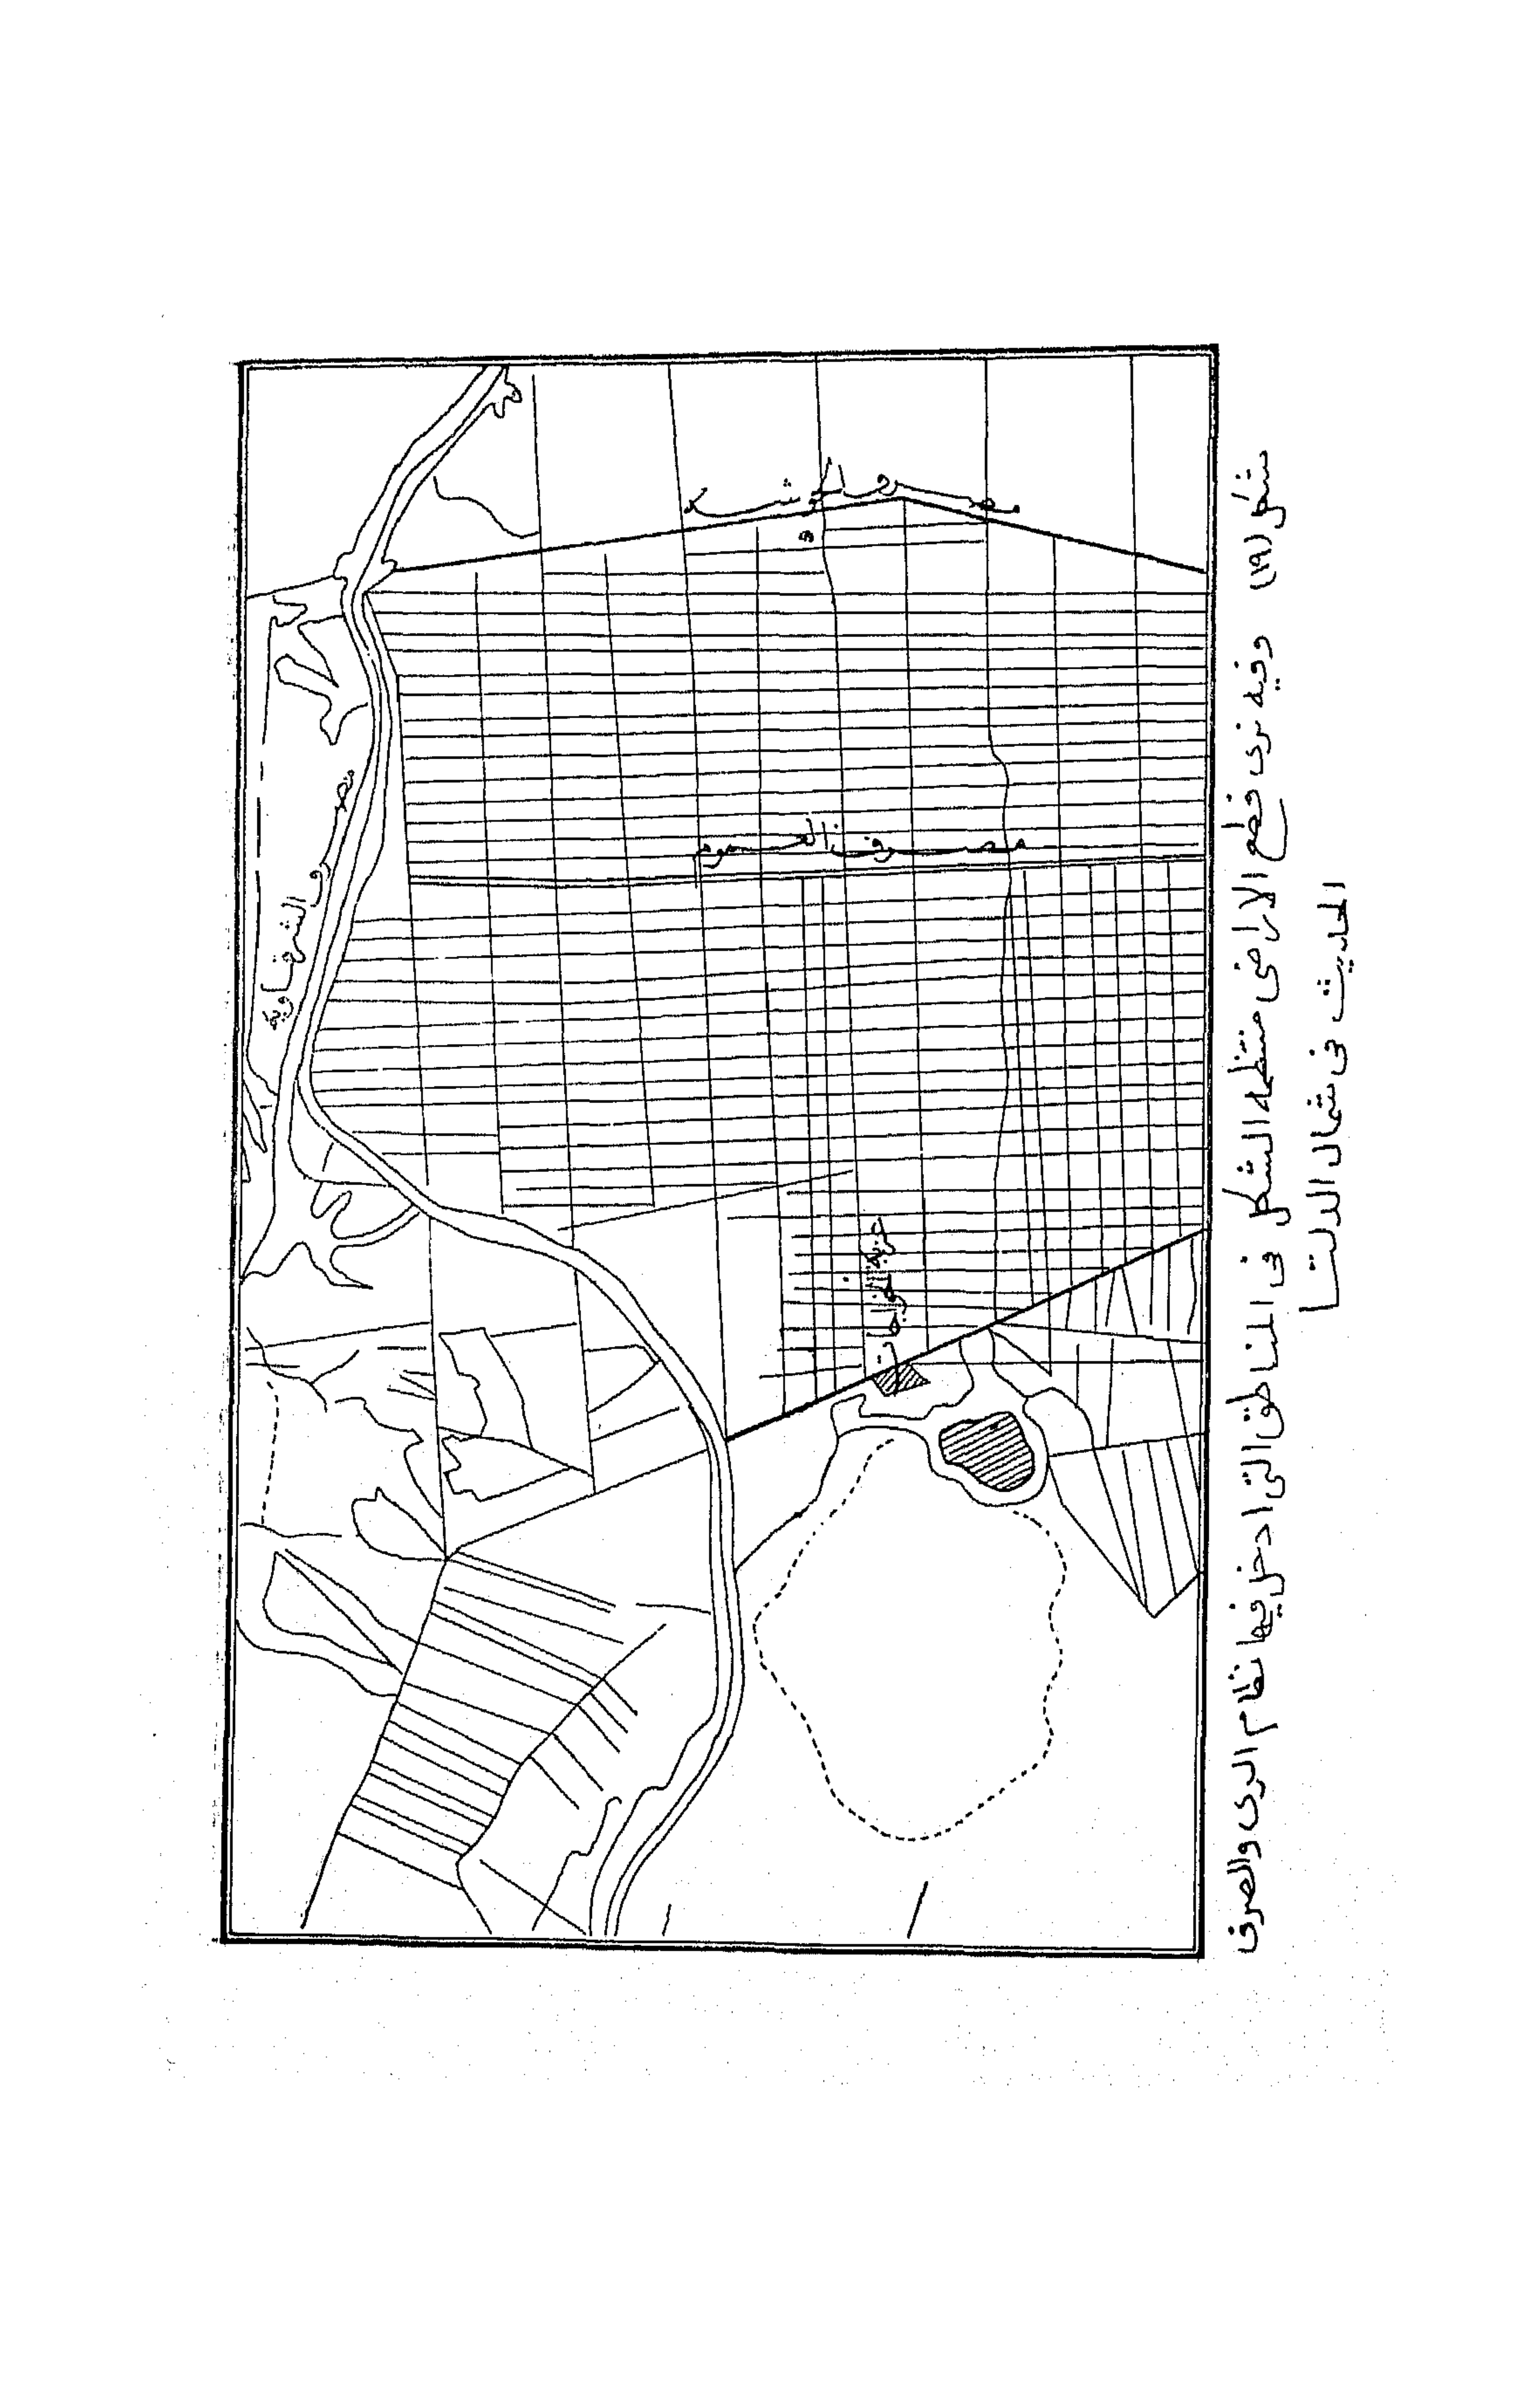 مصرف الشرقاوية
مصرف العموم
شكل (١٩) وفيه نرى قطع الأراضى منتظمه الشكل فى المناطق التى ادخل فيها نظام الرى والصرف
الحديث فى شمال الدلتا